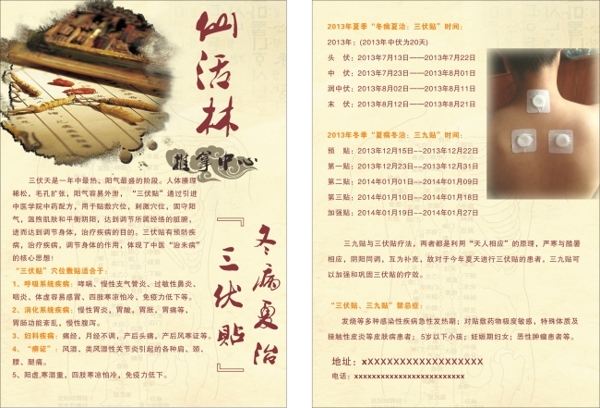 仙活林
推拿中心
三伏天是一年中最热，阳气最盛的阶段。人体腠理
稀松，毛孔扩张，阳气容易外泄，“三伏贴”通过引进
中医学院中药配方，用于贴敷穴位，刺激穴位，固守阳
气，温煦肌肤和平衡阴阳，达到调节所属经络的脏腑，
进而达到调节身体，治疗疾病的目的。三伏贴有预防疾
病，治疗疾病，调节身体的作用，体现了中医“治未病”
的核心思想！
“三伏贴”穴位敷贴适合于：
1、呼吸系统疾病：哮喘、慢性支气管炎、过敏性鼻炎、
咽炎、体虚容易感冒、四肢寒凉怕冷、免疫力低下等。
2、消化系统疾病：慢性胃炎，胃酸，胃胀，胃痛等，
胃肠功能紊乱，慢性腹泻。
3、妇科疾病：痛经，月经不调，产后头痛，产后风寒证等。
4、“痹证”：风湿、类风湿性关节炎引起的各种肩、颈、
腰、腿痛。
5、阳虚，寒湿重，四肢寒凉怕冷，免疫力低下。
冬病夏治
『三伏贴』
2013年夏季“冬病夏治：三伏贴”时间：
2013年：(2013年中伏为20天)
头 伏：2013年7月13日——2013年7月22日
中 伏：2013年7月23日——2013年8月01日
润中伏：2013年8月02日——2013年8月11日
末 伏：2013年8月12日——2013年8月21日
2013年冬季“夏病冬治：三九贴”时间：
预 贴：2013年12月15日——2013年12月22日
第一贴：2013年12月23日——2013年12月31日
第二贴：2014年01月01日——2014年01月09日
第三贴：2014年01月10日——2014年01月18日
加强贴：2014年01月19日——2014年01月27日
三九贴与三伏贴疗法，两者都是利用“天人相应”的原理，严寒与酷暑
相应，阴阳同调，互为补充，故对于今年夏天进行三伏贴的患者，三九贴可
以加强和巩固三伏贴的疗效。
“三伏贴、三九贴”禁忌症：
发烧等多种感染性疾病急性发热期；对贴敷药物极度敏感，特殊体质及
接触性皮炎等皮肤病患者；5岁以下小孩；妊娠期妇女；恶性肿瘤患者等。
地址：xxxxxxxxxxxxxxxxxxx
电话：xxxxxxxxxxxxxxxxxxxxxxxx